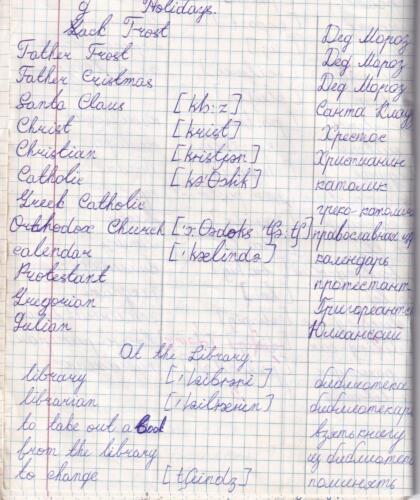 g Holidays.
Jack Frost Дед Мороз
Father Frost Дед Мороз
Father Cristmas Дед Мороз
Santa Claus [klɔ:z] Санта Клау
Christ [krist] Христос
Christian [kristjən] Христианин
Catholic [kə'θəlik] католик
Greek Catholic греко-католич
Orthodox Church ['ɔ:θədɔks 'tʃɜ:tʃ] православная
calendar ['kælində] календарь
Protestant протестант
Gregorian Григорианск
Julian Юлианский
At the Library
library ['laibrəri] библиотека
librarian библиотекарь
to take out a book взять книгу
from the library из библиотеки
to change [tʃeindʒ] поменять